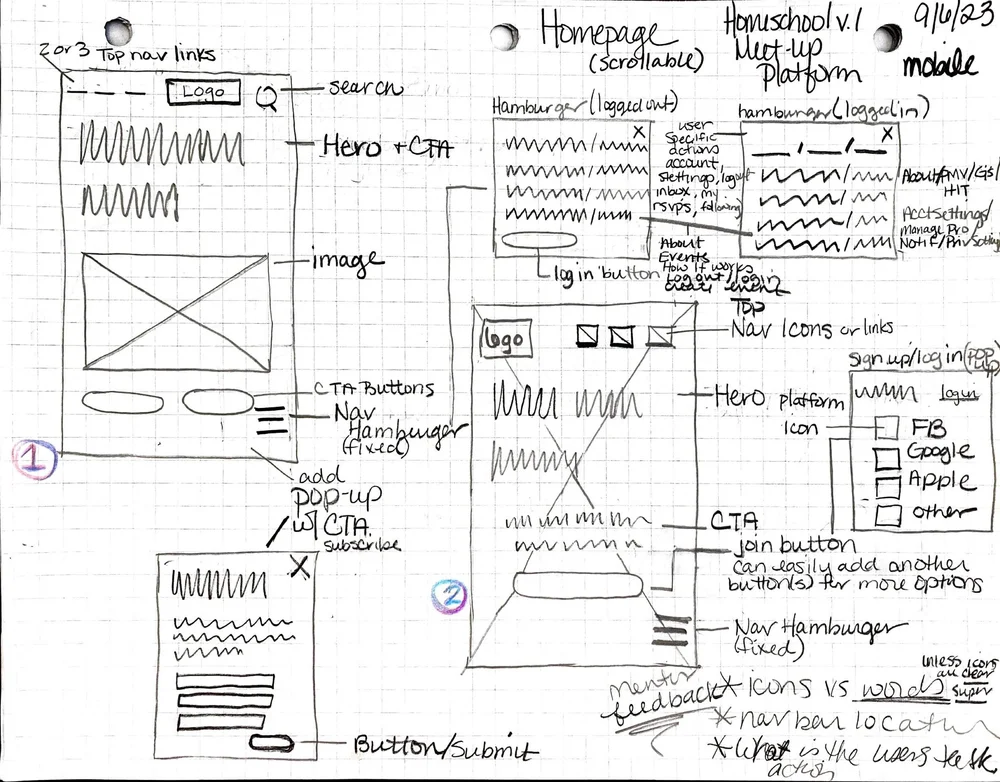 Homepage
(scrollable)
Homeschool v.1
Meet-up
Platform
9/6/23
mobile
2 or 3 Top nav links
Logo
search
Hero + CTA
image
CTA Buttons
Nav
Hamburger
(fixed)
1
add
POP-UP
w/ CTA
subscribe
X
Button/Submit
Hamburger (logged out)
X
log in button
user
specific
actions
account,
settings, logout
inbox, my
rsvps, following
About
Events
How it works
Logout/login
create event
hamburger (logged in)
X
HIT
Acct Settings/
Manage Pro/
Notif/Priv Settings
Top
Nav Icons or links
logo
Hero
CTA
join button
can easily add another
button(s) for more options
Nav Hamburger
(fixed)
2
sign up/log in (pop
up)
Login
platform
icon
FB
Google
Apple
other
mentor
feedback
* icons vs words
unless icons
are clear
super
* nav bar location
* What is the users task
action